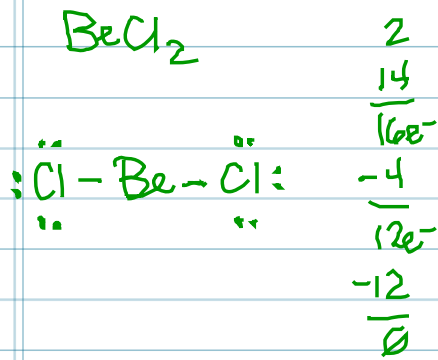 BeCl₂
:C̈l – Be – C̈l:
2
14
16e⁻
-4
12e⁻
-12
0̸